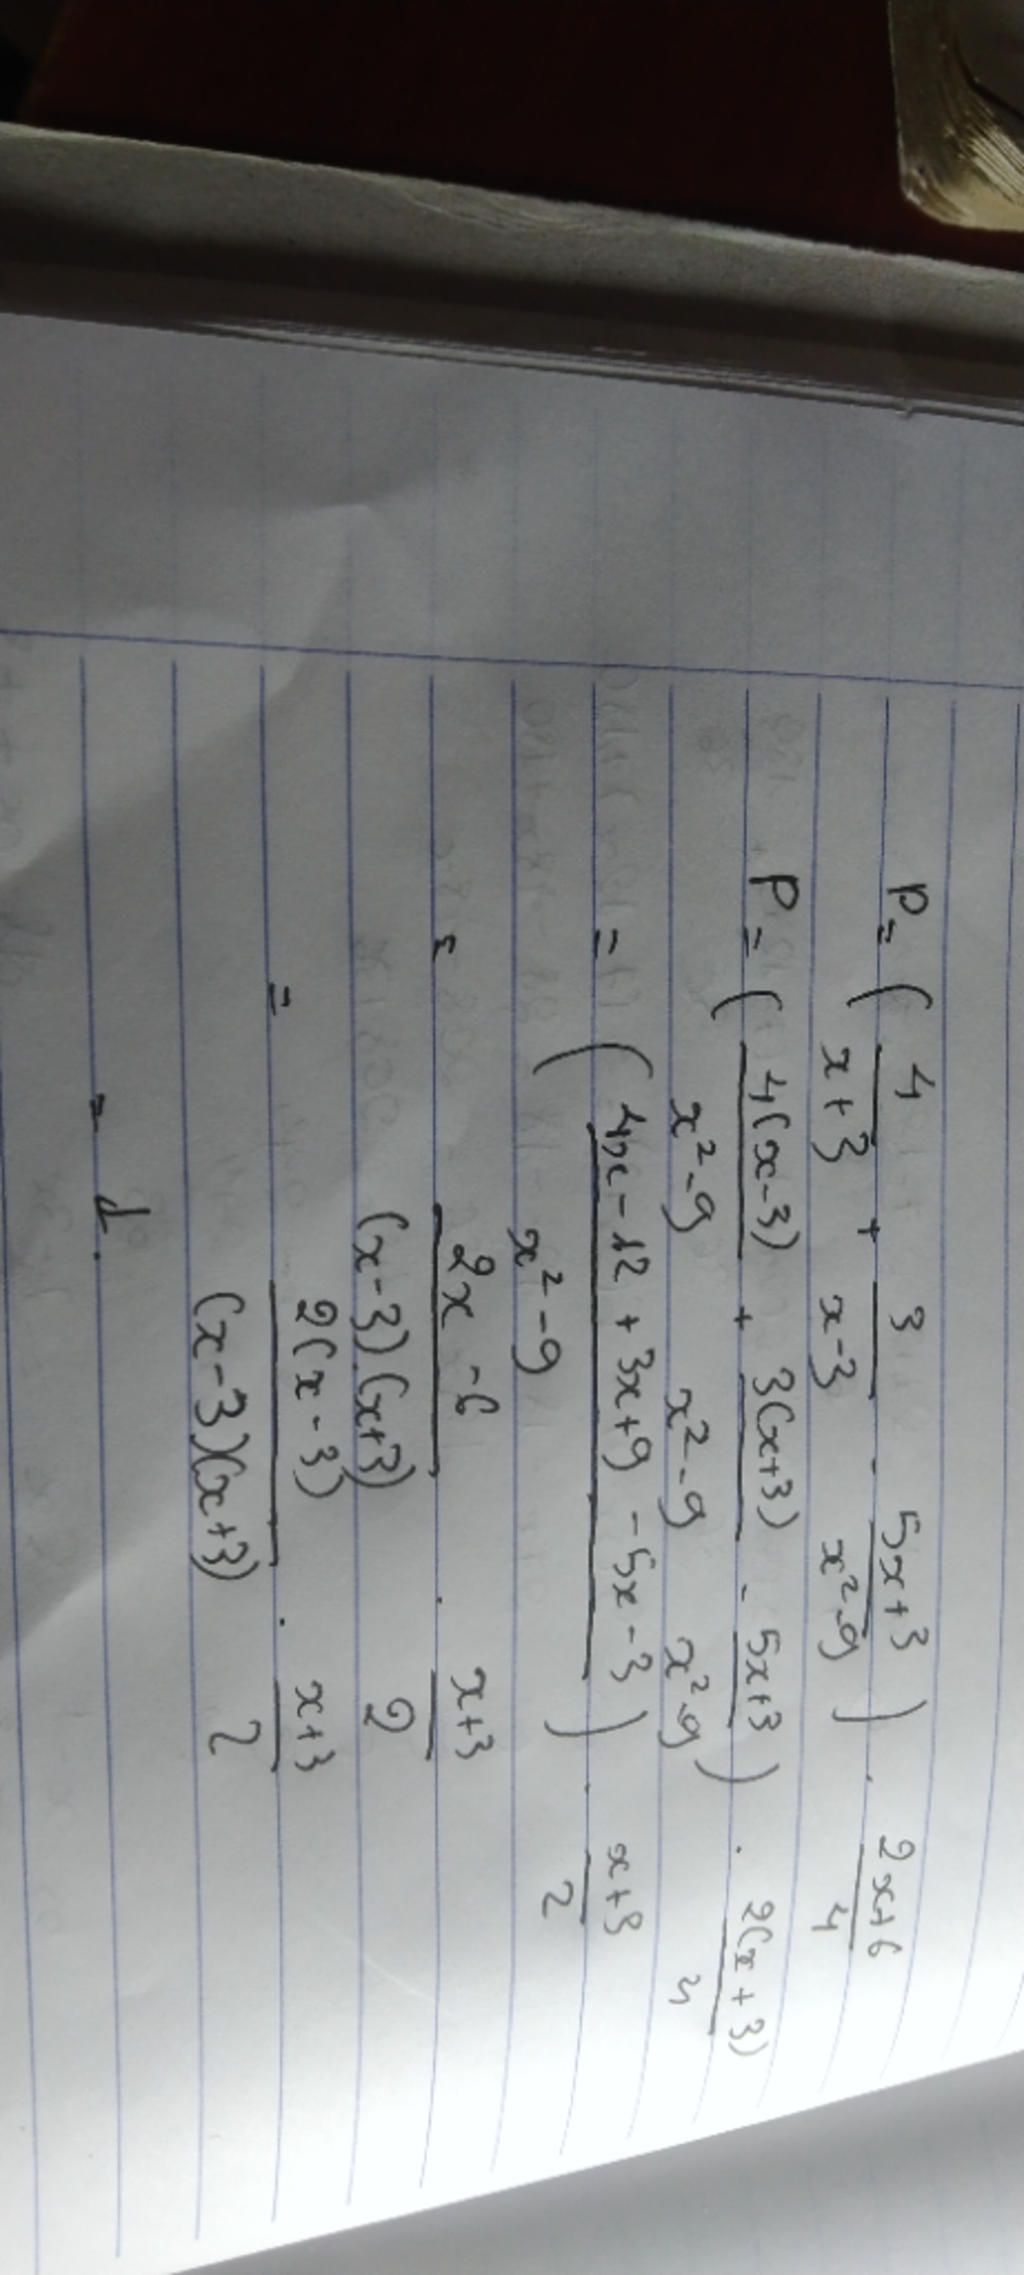 P = ( 4/(x+3) + 3/(x-3) - (5x+3)/(x²-9) ) . (2x+6)/4
P = ( 4(x-3)/(x²-9) + 3(x+3)/(x²-9) - (5x+3)/(x²-9) ) . 2(x+3)/4
= ( (4x-12+3x+9-5x-3)/(x²-9) ) . (x+3)/2
= (2x-6)/((x-3).(x+3)) . (x+3)/2
= 2(x-3)/((x-3)(x+3)) . (x+3)/2
= 1.